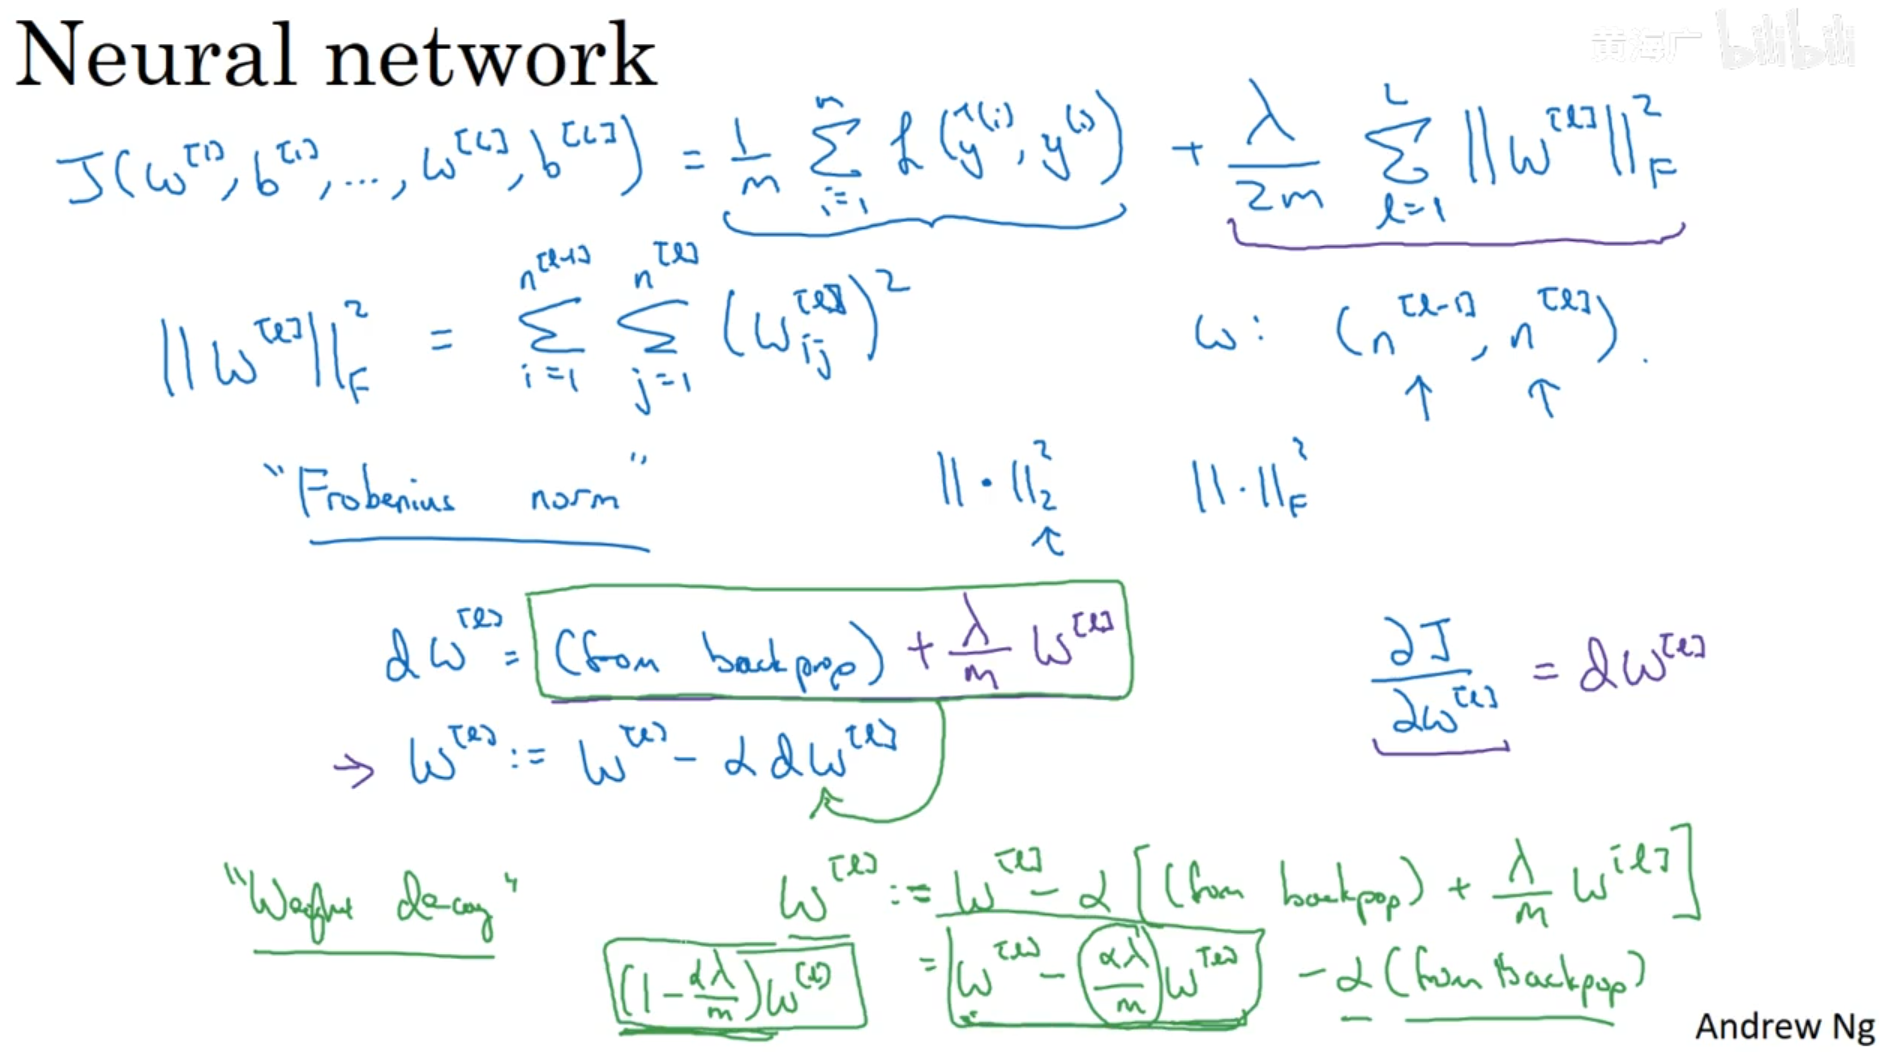 Neural network
黄海广 bilibili
J(w^[1], b^[1], ..., w^[L], b^[L]) = 1/m Σ_{i=1}^{m} L(ŷ^(i), y^(i)) + λ/2m Σ_{l=1}^{L} ||w^[l]||_F^2
||w^[l]||_F^2 = Σ_{i=1}^{n^[l-1]} Σ_{j=1}^{n^[l]} (w_ij^[l])^2    w: (n^[l-1], n^[l]).
↑ ↑
"Frobenius norm"    ||·||_2^2    ||·||_F^2
↑
dw^[l] = (from backprop) + λ/m w^[l]    ∂J/∂w^[l] = dw^[l]
→ w^[l] := w^[l] - α dw^[l]
"Weight decay"    w^[l] := w^[l] - α [(from backpop) + λ/m w^[l]]
(1 - αλ/m) w^[l]    = w^[l] - αλ/m w^[l] - α (from backpop)
Andrew Ng